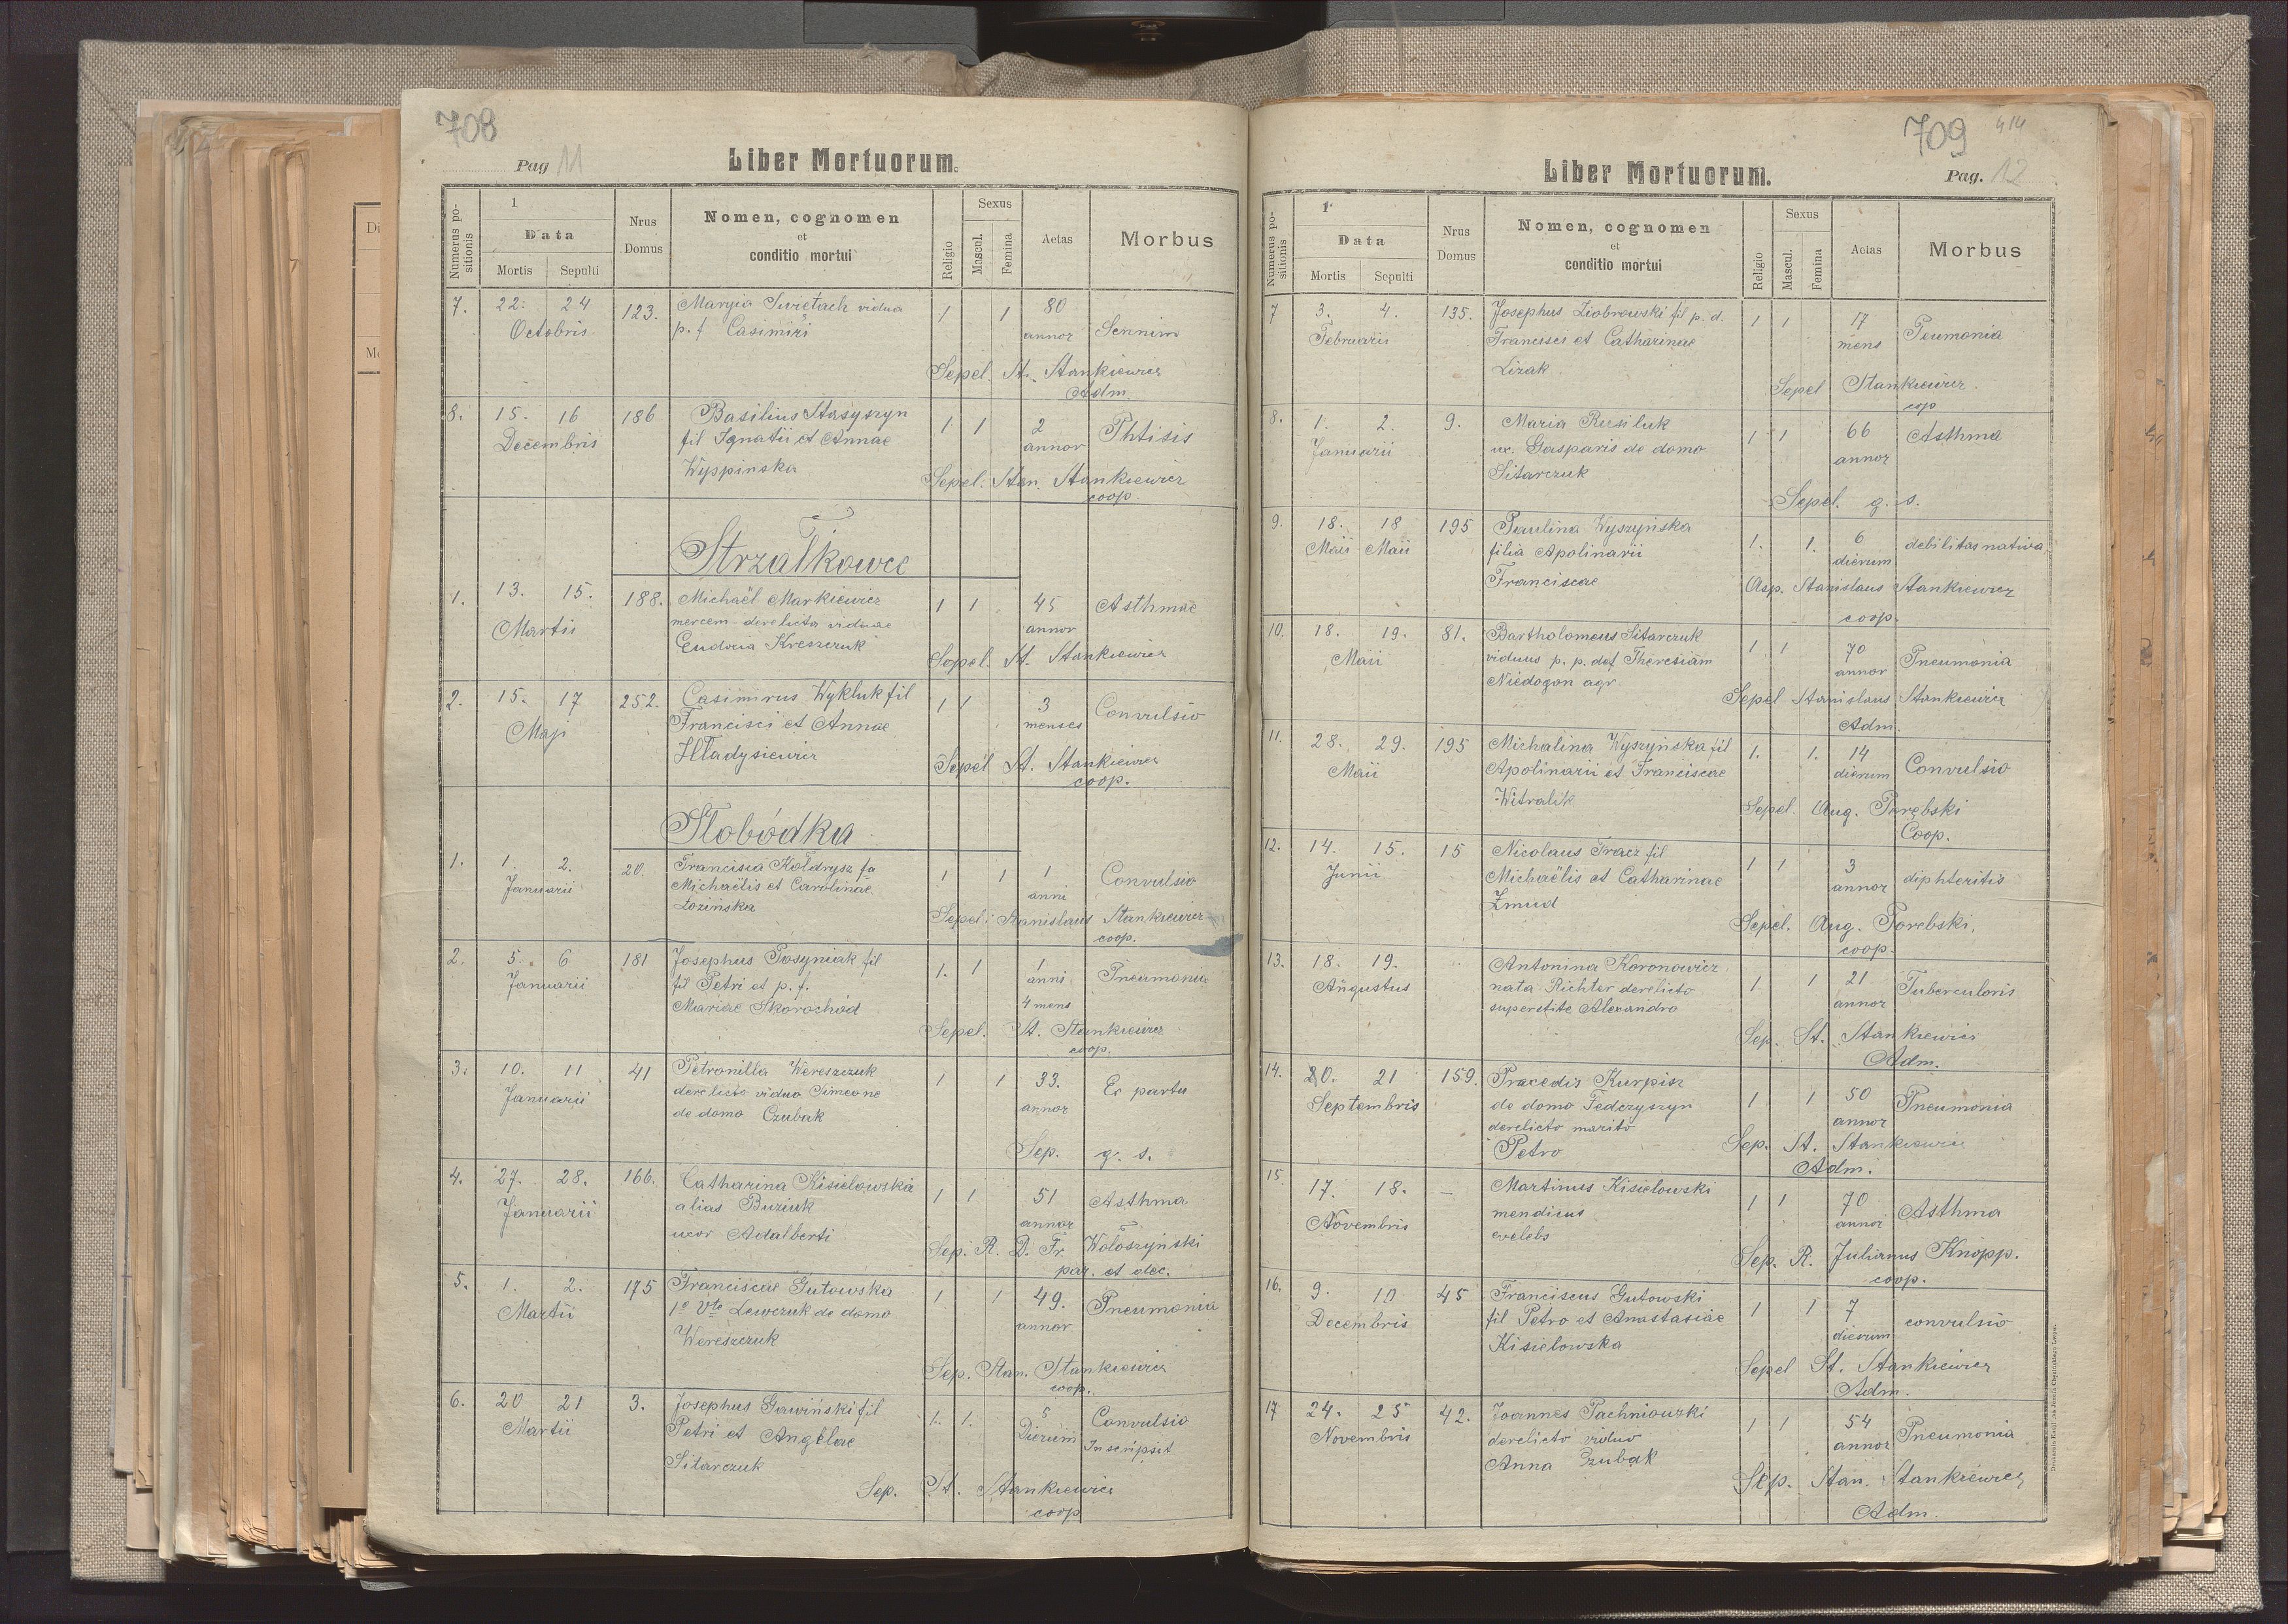 708
Pag 11
Liber Mortuorum.
Numerus positionis
1
Data
Mortis Sepulti
Nrus Domus
Nomen, cognomen
et
conditio mortui
Religio
Sexus
Mascul. Femina
Aetas
Morbus
7. 22. 24 123. Maryia Swiętach vidua 1 1 80
Octobris p. f Casimiri annor Sennim
Sepel. St. Stankiewicz
Adm.
8. 15. 16 186 Basilius Stasyszyn 1 1 2 Phtisis
Decembris fil Ignatii et Annae annor
Wyppinska
Sepel. Stan. Stankiewicz
coop.
Strzałkowce
1. 13. 15. 188. Michaël Markiewicz 1 1 45 Asthmae
Martii mercem derelicta viduae annor
Eudocia Kreszczuk
Sepel. St. Stankiewicz
2. 15. 17 252. Casimirus Wykluk fil 1 1 3 Convulsio
Maji Francisci et Annae menses
Hładysiewicz
Sepel St. Stankiewicz
coop.
Słobódka
1. 1. 2. 20. Francisca Kołdrysz fa 1 1 1 Convulsio
Januarii Michaëlis et Carolinae anni
Łozińska
Sepel: Stanislaus Stankiewicz
coop.
2. 5. 6 181 Josephus Posyniak fil 1. 1 1 Pneumonia
Januarii fil Petri et p. f. anni
Mariae Skorochód 4 mens
Sepel. St. Stankiewicz
coop.
3. 10. 11 41 Petronilla Wereszczuk 1 1 33. Ex partu
Januarii derelicto viduo Simeone annor
de domo Czubak
Sep. g. s.
4. 27. 28. 166. Catharina Kisielowska 1 1 51 Asthma
Januarii alias Buziuk annor
uxor Adalberti
Sep. R. D. Fr. Wołoszyński
par. et dec.
5. 1. 2. 175 Franciscae Gutowska 1 1 49. Pneumonia
Martii 1o Vto Lewczuk de domo annor
Wereszczuk
Sep. Stan. Stankiewicz
coop.
6. 20 21 3. Josephus Gawiński fil 1. 1. 5 Convulsio
Martii Petri et Angelae Dierum Inscripsit
Sitarczuk
Sep. St. Stankiewicz
coop
709 414
Liber Mortuorum.
Pag. 12
Numerus positionis
1
Data
Mortis Sepulti
Nrus Domus
Nomen, cognomen
et
conditio mortui
Religio
Sexus
Mascul. Femina
Aetas
Morbus
7 3. 4. 135. Josephus Ziobrowski fil p. d. 1 1 17 Peumonia
Februarii Francisci et Catharinae mens
Lizak
Sepel Stankiewicz
cop
8. 1. 2. 9. Maria Rusiluk 1 1 66 Asthma
Januarii ux. Gasparis de domo annor
Sitarczuk
Sepel. g. s.
9. 18. 18 195 Paulina Wyszyńska 1. 1. 6 debilitas nativa
Maii Maii filia Apolinarii dierum
Franciscae
Asp. Stanislaus Stankiewicz
coop.
10. 18. 19. 81. Bartholomeus Sitarczuk 1 1 70 Pneumonia
Maii viduus p. p. def Theresiam annor
Niedogon agr.
Sepel Stanislaus Stankiewicz
Adm.
11. 28. 29. 195 Michalina Wyszyńska fil 1. 1. 14 Convulsio
Maii Apolinarii et Franciscae dierum
Witralik
Sepel. Aug. Porębski
Coop.
12. 14. 15. 15 Nicolaus Tracz fil 1 1 3 diphteritis
Junii Michaëlis et Catharinae annor
Żmud
Sepel. Aug. Porebski.
coop.
13. 18. 19. Antonina Koronowicz 1. 1 21 Tuberculoris
Augustus nata Richter derelicto annor
superstite Alexandro
Sep. St. Stankiewicz
Adm.
14. 20. 21 159. Pracedis Kurpisz 1 1 50 Pneumonia
Septembris de domo Fedczyszyn annor
derelicto marito
Petro
Sep. St. Stankiewicz
Adm.
15. 17. 18. – Martinus Kisielowski 1 1 70 Asthma
Novembris mendicus annor
coelebs
Sep. R. Julianus Knopp.
coop.
16. 9. 10 45 Franciscus Gutowski 1 1 7 convulsio
Decembris fil Petro et Anastasiae dierum
Kisielowska
Sepel St. Stankiewicz
Adm.
17 24. 25 42. Joannes Pachniowski 1 1 54 Pneumonia
Novembris derelicto viduo annor
Anna Czubak
Sep. Stan. Stankiewicz
Adm.